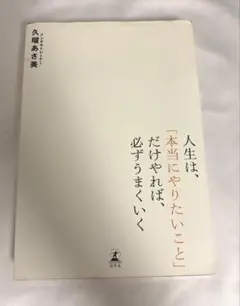 人生は、
「本当にやりたいこと」
だけやれば、
必ずうまくいく
久瑠あさ美